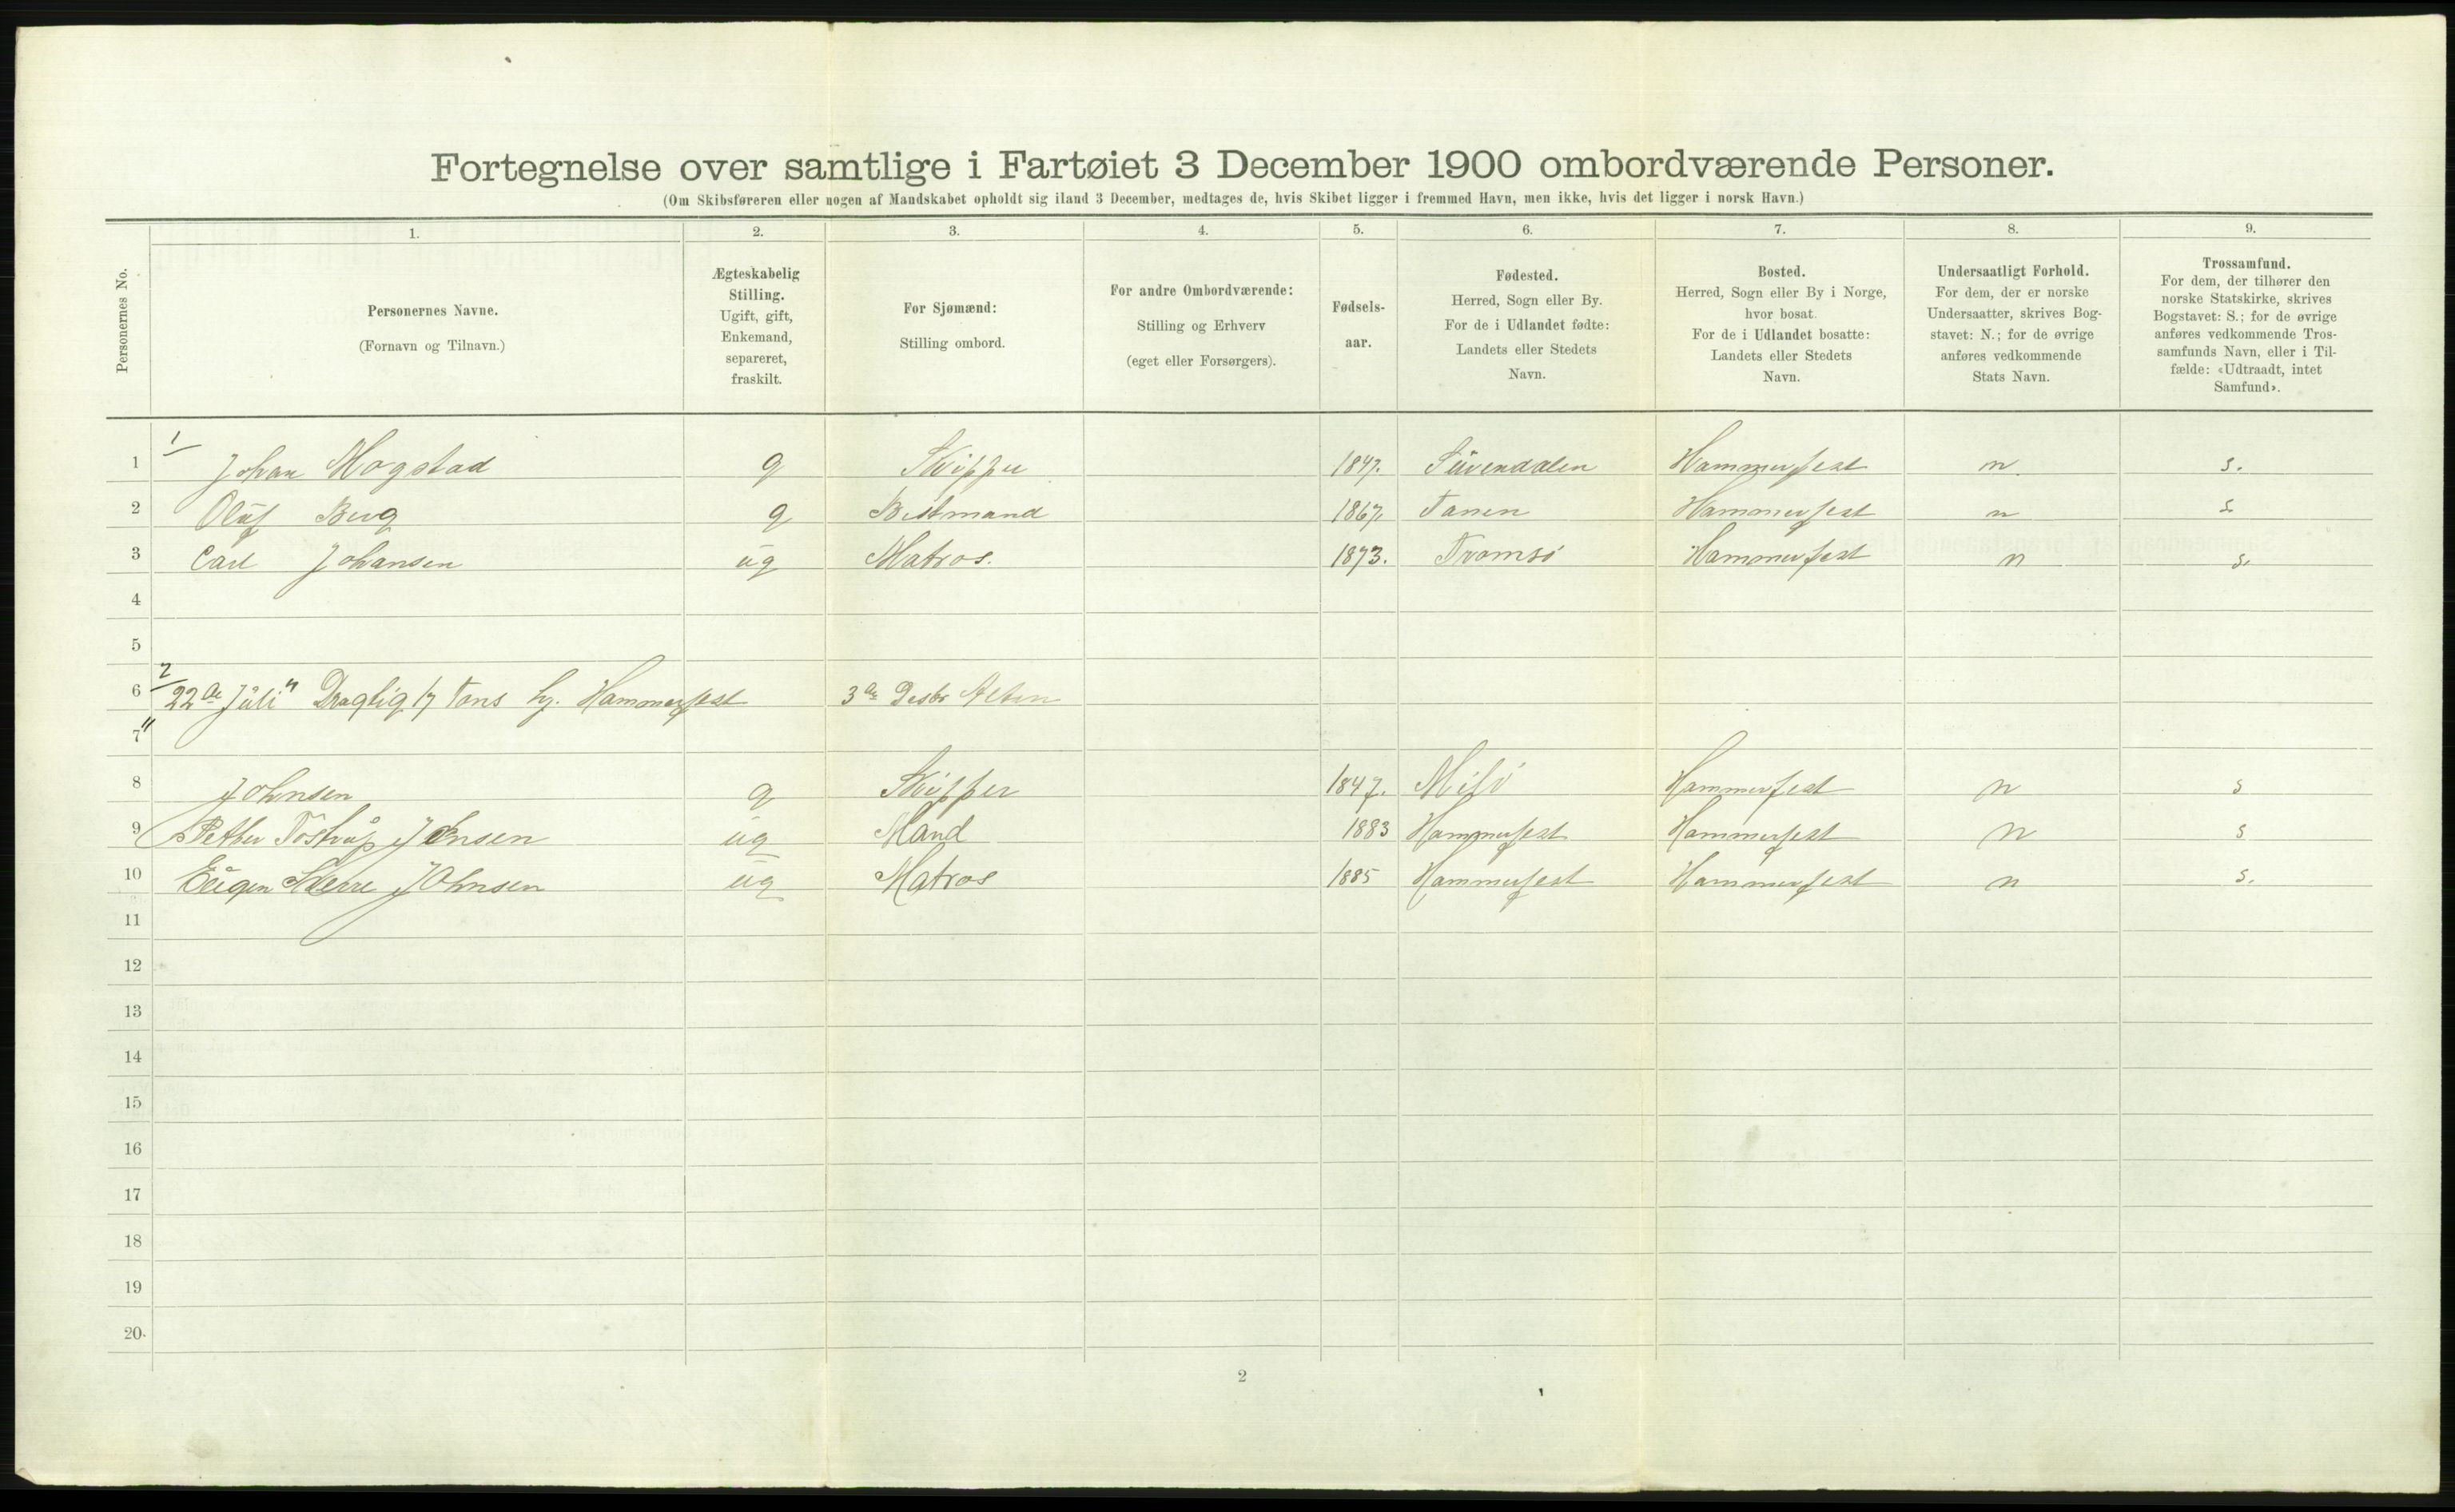 Fortegnelse over samtlige i Fartøiet 3 December 1900 ombordværende Personer.
(Om Skibsføreren eller nogen af Mandskabet opholdt sig iland 3 December, medtages de, hvis Skibet ligger i fremmed Havn, men ikke, hvis det ligger i norsk Havn.)
Personernes No.
1.
Personernes Navne.
(Fornavn og Tilnavn.)
2.
Ægteskabelig
Stilling.
Ugift, gift,
Enkemand,
separeret,
fraskilt.
3.
For Sjømænd:
Stilling ombord.
4.
For andre Ombordværende:
Stilling og Erhverv
(eget eller Forsørgers).
5.
Fødsels-
aar.
6.
Fødested.
Herred, Sogn eller By.
For de i Udlandet fødte:
Landets eller Stedets
Navn.
7.
Bosted.
Herred, Sogn eller By i Norge,
hvor bosat.
For de i Udlandet bosatte:
Landets eller Stedets
Navn.
8.
Undersaatligt Forhold.
For dem, der er norske
Undersaatter, skrives Bog-
stavet: N.; for de øvrige
anføres vedkommende
Stats Navn.
9.
Trossamfund.
For dem, der tilhører den
norske Statskirke, skrives
Bogstavet: S.; for de øvrige
anføres vedkommende Tros-
samfunds Navn, eller i Til-
fælde: «Udtraadt, intet
Samfund».
1/
1 Johan Mogstad g Skipper 1847. Sürendalen Hammerfest n s.
2 Olüf Berg g Bestmand 1867. Tanen Hammerfest n s.
3 Carl Johansen üg Matros. 1873. Tromsö Hammerfest n s.
4
5
2/
6 "22de Jüli" Dragtig 17 Tons hj. Hammerfest 3de Desbr Alten
7
8 Johnsen g Skipper 1847. Hammerfest n s
9 Pether Tostrüp Johnsen üg Mand 1883 Hammerfest Hammerfest n s
10 Eügen Johnsen üg Matros 1885 Hammerfest Hammerfest n s.
11
12
13
14
15
16
17
18
19
20
2